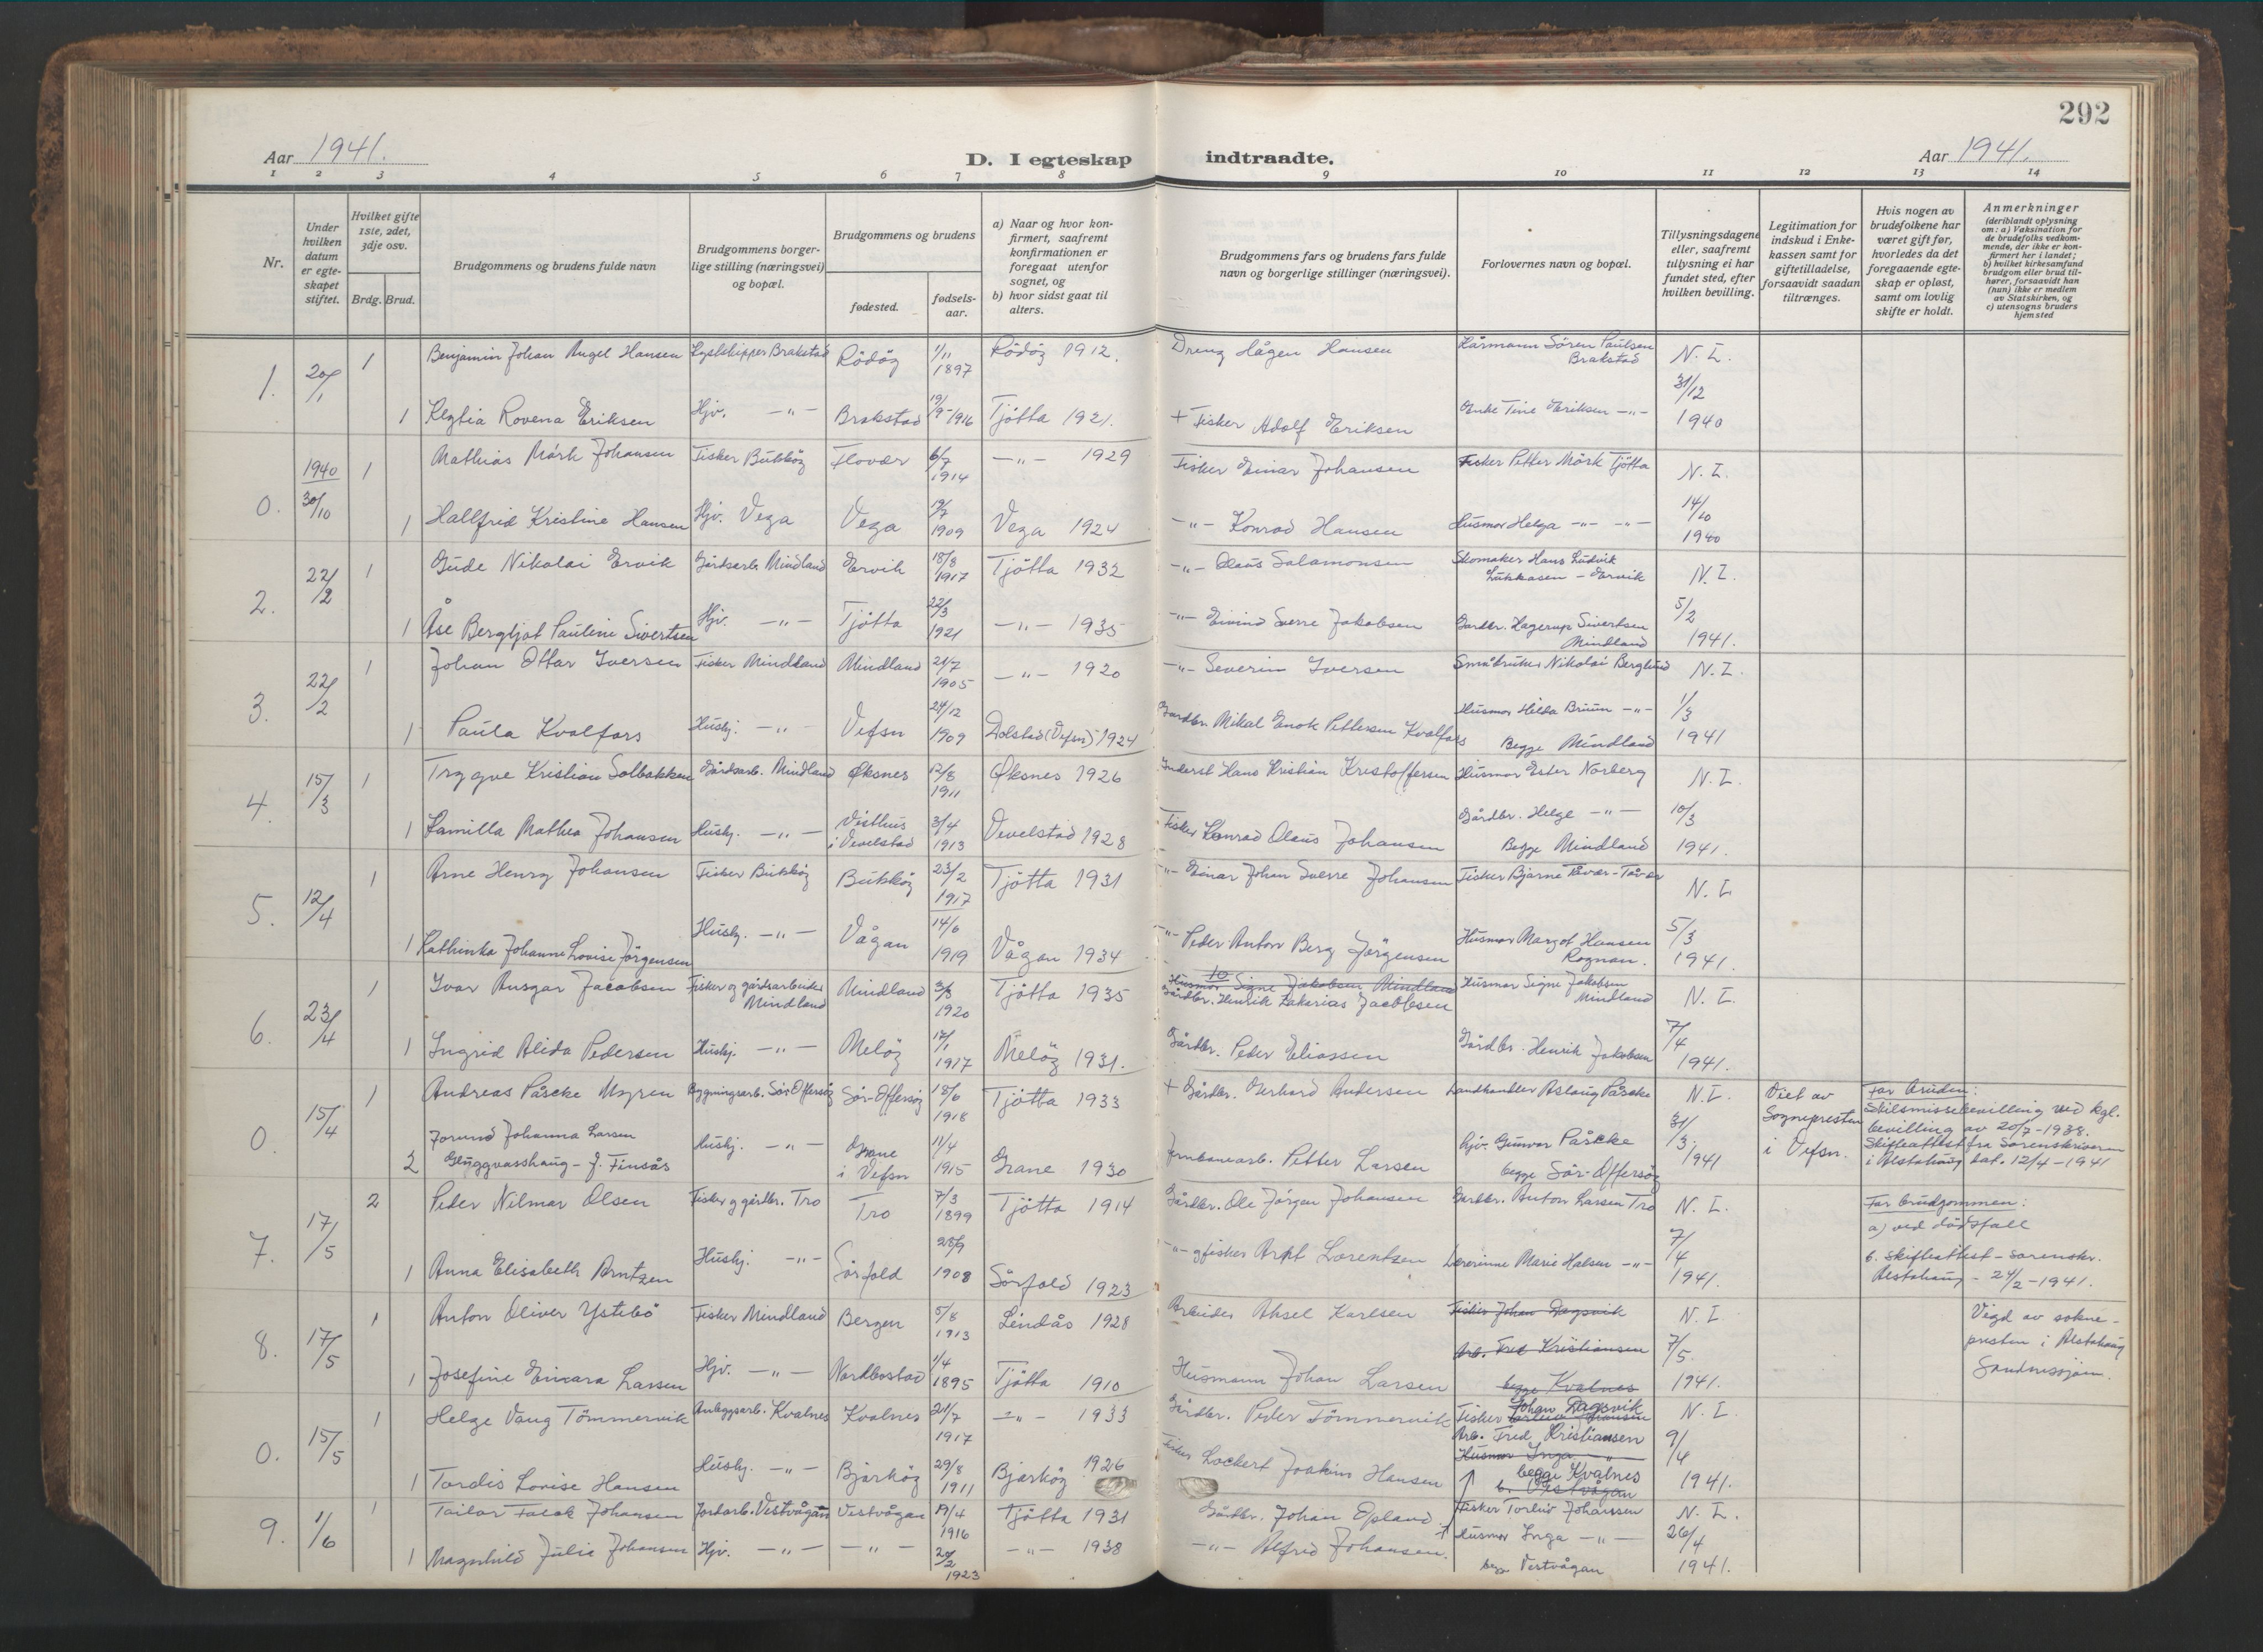 292
Aar 1941.
D. I egteskap indtraadte.
Aar 1941.
1 2 3 4 5 6 7 8 9 10 11 12 13 14
Nr.
Under hvilken datum er egteskapet stiftet.
Hvilket gifte 1ste, 2det, 3dje osv.
Brdg. Brud.
Brudgommens og brudens fulde navn
Brudgommens borgerlige stilling (næringsvei) og bopæl.
Brudgommens og brudens
fødested.
fødselsaar.
a) Naar og hvor konfirmert, saafremt konfirmationen er foregaat utenfor sognet, og
b) hvor sidst gaat til alters.
Brudgommens fars og brudens fars fulde navn og borgerlige stillinger (næringsvei).
Forlovernes navn og bopæl.
Tillysningsdagene eller, saafremt tillysning ei har fundet sted, efter hvilken bevilling.
Legitimation for indskud i Enkekassen samt for giftetilladelse, forsaavidt saadan tiltrænges.
Hvis nogen av brudefolkene har været gift før, hvorledes da det foregaaende egteskap er opløst, samt om lovlig skifte er holdt.
Anmerkninger
(deriblandt oplysning om: a) Vaksination for de brudefolks vedkommende, der ikke er konfirmert her i landet; b) hvilket kirkesamfund brudgom eller brud tilhører, forsaavidt han (hun) ikke er medlem av Statskirken, og c) utensogns bruders hjemsted
1. 20/1 1 Benjamin Johan Angel Hansen Brakstad Rödöy 1/11 1897 Rödöy 1912. Dreng Hågen Hansen Hårmann Sören Paulsen Brakstad N. L.
1 Rovena Eriksen Hjv. -"- Brakstad 19/9-1916 Tjötta 1921. + Fisker Adolf Eriksen Enke Tine Eriksen -"- 31/12 1940
0. 1940 30/10 1 Mathias Mörk Johansen Fisker Bukköy Flovær 6/7 1914 -"- 1929 Fisker Einar Johansen Fisker Petter Mörk Tjötta N. L.
1 Hallfrid Kristine Hansen Hjv. Vega Vega 1909 Vega 1924 -"- Konrad Hansen Husmor Helga -"- -"- 14/10 1940
2. 22/2 1 Gude Nikolai Ervik Gårdsarb. Mindland Ervik 18/3 1917 Tjötta 1932 -"- Olaus Salamonsen Skomaker Hans Ludvik Lukkasen - Ervik N. L.
1 Åse Bergljot Pauline Sivertsen Hjv. -"- Tjötta 22/3 1921 -"- 1935 -"- Eivind Sverre Jakobsen Gardbr. Hagerup Sivertsen Mindland 5/2 1941.
3. 22/2 1 Johan Ottar Iversen Fisker Mindland Mindland 21/7 1905 -"- 1920 -"- Severin Iversen Småbruker Nikolai Berglund N. L.
1 Paula Kvalfors Hushj. -"- Vefsn 24/12 1909 Dolstad (Vefsn) 1924 Gardbr. Mikal Enok Pettersen Kvalfors Husmor Hilda Bruun -"- Begge Mindland 1/3 1941
4. 15/3 1 Trygve Kristian Solbakken Gårdsarb. Mindland Øksnes 12/8 1911 Øksnes 1926 Inderst Hans Kristian Kristoffersen Husmor Ester Norberg N. L.
1 Kamilla Mathea Johansen Hushj. -"- Visthus i Vevelstad 3/4 1913 Vevelstad 1928 Fisker Konrad Olaus Johansen Gårdbr. Helge -"- Begge Mindland 10/3 1941.
5. 12/4 1 Arne Henry Johansen Fisker Bukköy Bukköy 23/2 1917 Tjötta 1931 -"- Einar Johan Sverre Johansen Fisker Bjarne Tåvær - Tåvær N. L.
1 Kathinka Johanne Lovise Jörgensen Hushj. -"- Vågan 14/6 1919 Vågan 1934 -"- Peder Anton Berg Jörgensen Husmor Margot Hansen Rognan. 5/3 1941.
6. 23/4 1 Ivar Ansgar Jacobsen Fisker og gårdsarbeider Mindland Mindland 1920 Tjötta 1935 10 Husmor Signe Jakobsen Mindland Gårdbr. Henrik Zakarias Jacobsen Husmor Signe Jakobsen Mindland N. L.
1 Ingrid Alida Pedersen Hushj. -"- Melöy 17/1 1917 Melöy 1931. Gårdbr. Peder Eliassen Gårdbr. Henrik Jakobsen 7/4 1941.
0. 15/4 1 Andreas Påscke Myren Bygningsarb. Sör-Offersöy Sör-Offersöy 18/6 1918 Tjötta 1933 + Gårdbr. Gerhard Andersen Landhandler Aslaug Påscke N. L. Viet av Sognepresten i Vefsn. For bruden: Skilsmissebevilling ved kgl. bevilling av 20/7-1938. Skifteattest fra Sorenskriveren i Alstahaug dat. 12/4-1941
2 Jorund Johanna Larsen Glugvasshaug - f. Finsås Hushj. -"- Grane i Vefsn 11/4 1915 Grane 1930 Jernbanearb. Petter Larsen Hjv. Gunvor Påscke begge Sör-Offersöy 31/3 1941
7. 17/5 2 Peder Nilmar Olsen Fisker og gårdbr. Tro Tro 7/3 1899 Tjötta 1914 Gårdbr. Ole Jörgen Johansen Gardbr. Anton Larsen Tro N. L. For brudgommen: a) ved dödsfall b. Skifteattest - sorenskr. Alstahaug - 24/2-1941.
1 Anna Elisabeth Arntzen Hushj. -"- Sörfold 25/9 1908 Sörfold 1923 -"- og fisker Arnt Lorentzen Lærerinne Marie Halsen -"- 7/4 1941.
8. 17/5 1 Anton Oliver Ystebö Fisker Mindland Bergen 5/8 1913 Lindås 1928 Arbeider Aksel Karlsen Fisker Johan Dagsvik N. L. Vigd av sokne-presten i Alstahaug Sandnessjöen.
1 Josefine Einara Larsen Hjv. -"- Nordbostad 1/4 1895 Tjötta 1910 Husmann Johan Larsen Arb. Fred Kristiansen begge Kvalnes 7/5. 1941.
0. 15/5 1 Helge Vang Tömmervik Anleggsarb. Kvalnes Kvalnes 21/7 1917 -"- 1933 Gårdbr. Peder Tömmervik Fisker Johan Dagsvik N. L.
1 Tordis Lovise Hansen Hushj. -"- Bjarköy 29/8 1911 Bjarköy 1926 Fisker Lockert Joakim Hansen Arb. Fred Kristiansen Husmor Inga -"- begge Kvalnes b. Vestvågan 9/4 1941.
9. 1/6 1 Tailor Falck Johansen Jordarb. Vestvågan Vestvågan 19/4 1916 Tjötta 1931 Gårdbr. Johan Opland Fisker Torleiv Johansen N. L.
1 Magnhild Julie Johansen Hjv. -"- -"- 20/2 1923 -"- 1938 -"- Alfred Johansen. Husmor Inga -"- begge Vestvågan 26/4 1941.